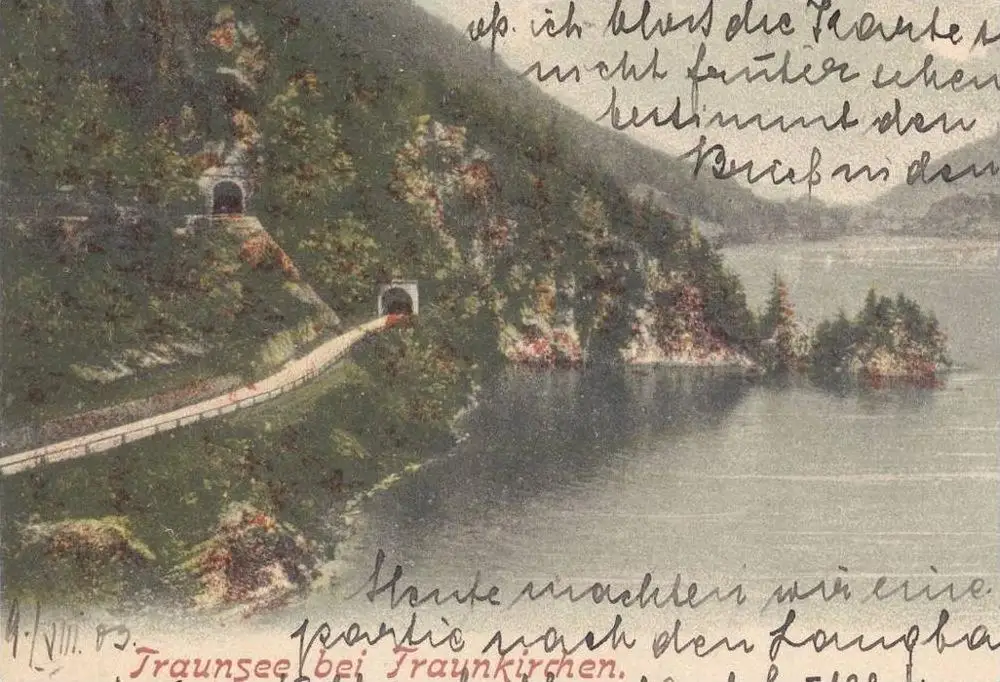 ob ich blos die Karte
nicht früher sehen
bestimmt den
Brief in den
Heute machten wir eine
partie nach den Langba
9./VIII. 03.
Traunsee bei Traunkirchen.